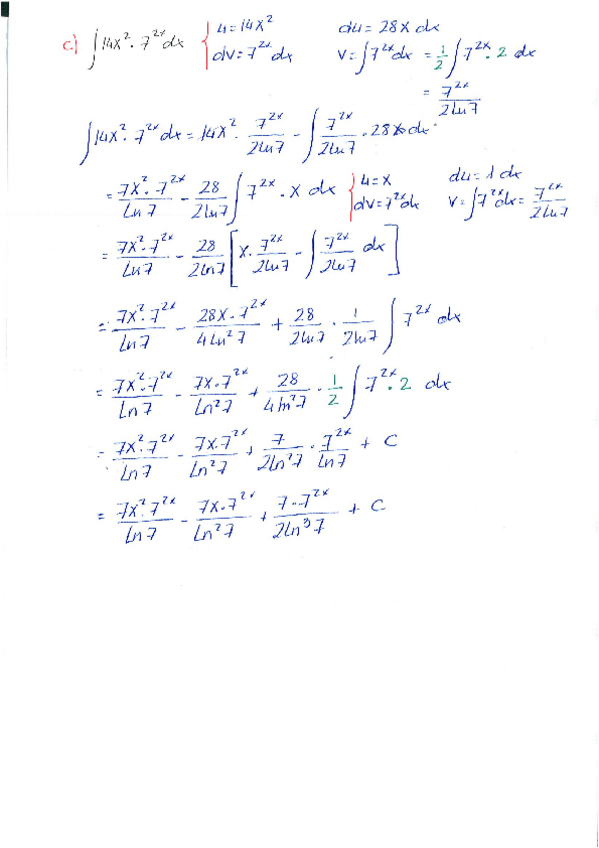 c) ∫14x²·7^{2x}dx { u=14x² du=28x dx
dv=7^{2x}dx v=∫7^{2x}dx = 1/2 ∫7^{2x}·2 dx
= 7^{2x}/(2ln7)
∫14x²·7^{2x}dx = 14x²·7^{2x}/(2ln7) - ∫7^{2x}/(2ln7)·28x dx
= (7x²·7^{2x})/(Ln7) - 28/(2ln7) ∫7^{2x}·x dx { u=x du=1dx
dv=7^{2x}dx v=∫7^{2x}dx = 7^{2x}/(2ln7)
= (7x²·7^{2x})/(Ln7) - 28/(2ln7) [x·7^{2x}/(2ln7) - ∫7^{2x}/(2ln7) dx]
= (7x²·7^{2x})/(Ln7) - (28x·7^{2x})/(4ln²7) + 28/(2ln7)·1/(2ln7) ∫7^{2x}dx
= (7x²·7^{2x})/(Ln7) - (7x·7^{2x})/(Ln²7) + 28/(4ln²7)·1/2 ∫7^{2x}·2 dx
= (7x²·7^{2x})/(Ln7) - (7x·7^{2x})/(Ln²7) + 7/(2ln²7)·7^{2x}/(ln7) + C
= (7x²·7^{2x})/(Ln7) - (7x·7^{2x})/(Ln²7) + (7·7^{2x})/(2ln³7) + C